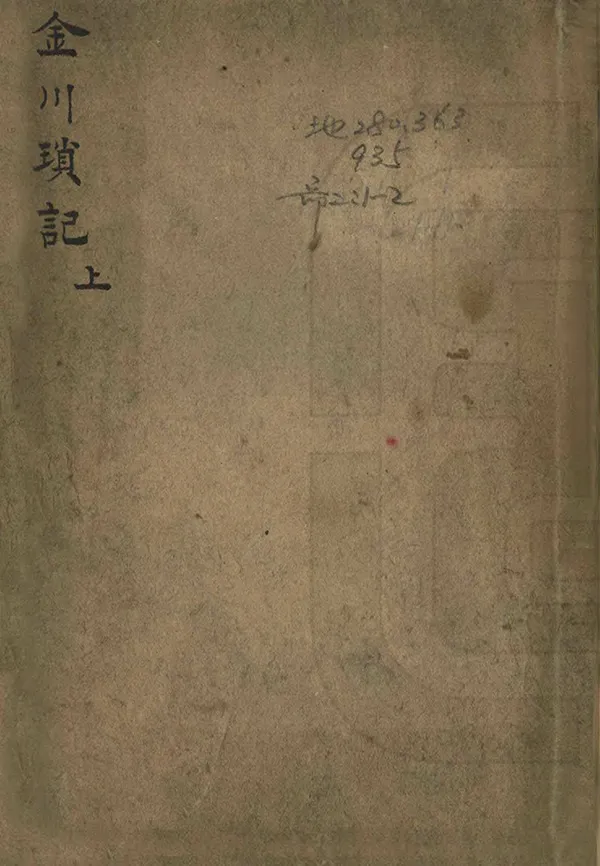 金川瑣記
上
地280.363
935
部2:1-2